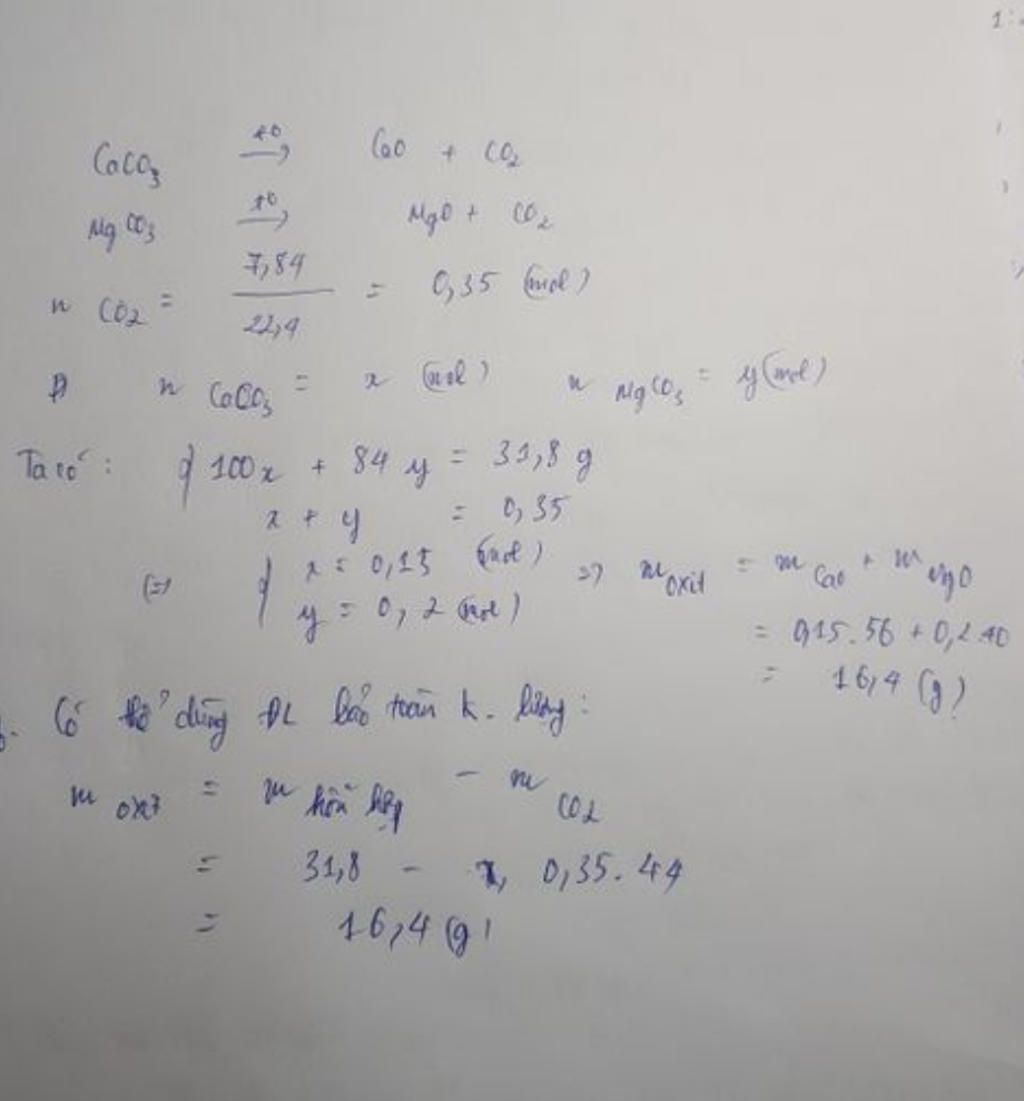 1:
CaCO3 t0→ CaO + CO2
MgCO3 t0→ MgO + CO2
n CO2 = 7,84 / 22,4 = 0,35 (mol)
n CaCO3 = x (mol) n MgCO3 = y (mol)
Ta có: { 100x + 84 y = 31,8 g
x + y = 0,35
(=) { x = 0,15 (mol) => m oxit = m CaO + m MgO
y = 0,2 (mol) = 0,15.56 + 0,2.40
= 16,4 (g)
Có thể dùng ĐL bảo toàn k. lượng:
m oxit = m hỗn hợp - m CO2
= 31,8 - 0,35.44
= 16,4 (g)